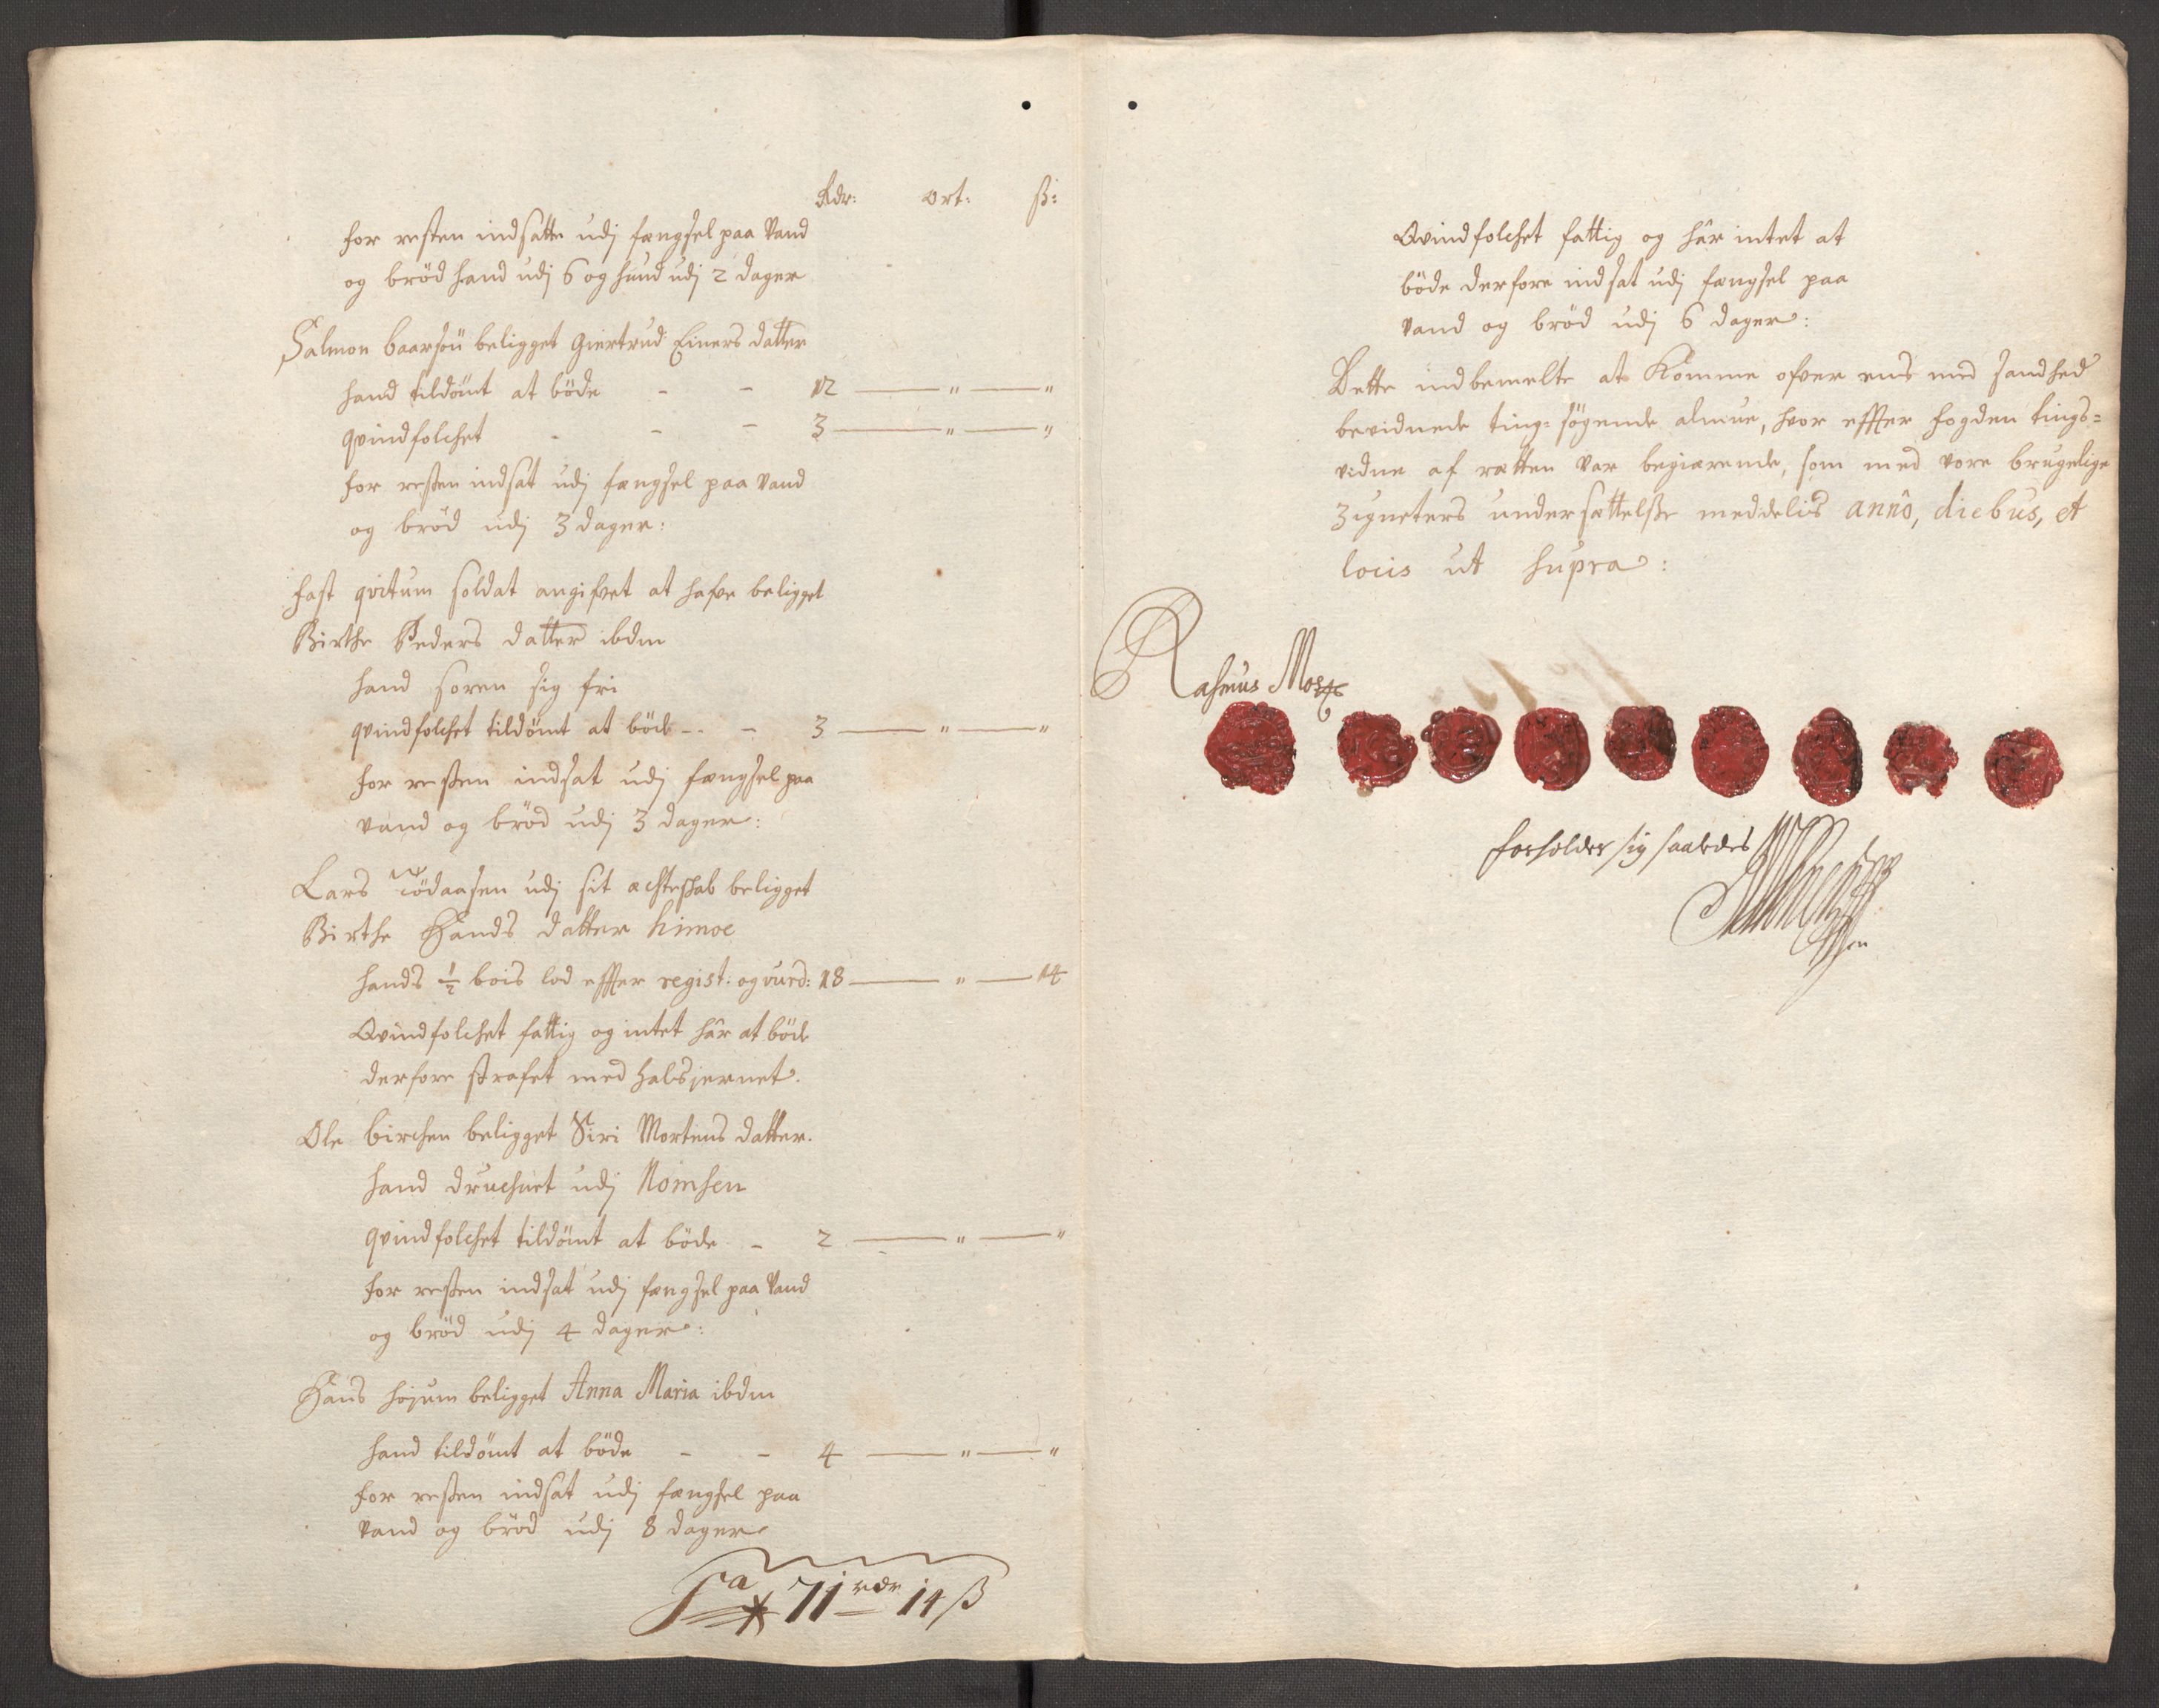 Rdr: ort: ß:
for resten indsatte udj fængsel paa vand
og bröd hand udj 6 og hund udj 2 dager
Salmon baarsöu beligget Giertrud Einers datter
hand tildömt at böde - - 12 — " — "
qvindfolchet - - - 3 — " — "
for resten indsat udj fængsel paa vand
og bröd udj 3 dager:
fast qvitum soldat angifvet at hafve beligget
Birthe Peders datter ibdm
hand soren sig fri
qvindfolchet tildömt at böde - - 3 — " — "
for resten indsat udj fængsel paa
vand og bröd udj 3 dager:
Lars Tödaasen udj sit echteschab beligget
Birthe Hands datter himoe
hands 1/2 bois lod effter regist: og vurd: 18 — " — 14
Qvindfolchet fattig og intet hâr at böde
derfore strafet med halsjernet.
Ole birchen beligget Siri Mortens datter.
hand druchnet udj Nomsen
qvindfolchet tildömt at böde - 2 — " — "
for resten indsat udj fængsel paa vand
og bröd udj 4 dager:
Hans hojum beligget Anna Maria ibdm
hand tildömt at böde - - 4 — " — "
for resten indsat udj fængsel paa
vand og bröd udj 8 dager
Sa 71 rdr 14 ß
Qvindfolchet fattig og hâr intet at
böde derfore indsat udj fængsel paa
vand og bröd udj 6 dager:
Dette indbemelte at Komme ofver ens med sandhed
bevidnede ting-sögende almue, hvor effter fogden tings=
vidne af rætten var begiærende, som med vore brugelige
Zigneters undersættelße meddelis annô, diebus, et
locis ut supra:
Rasmus
forholder sig saaledes